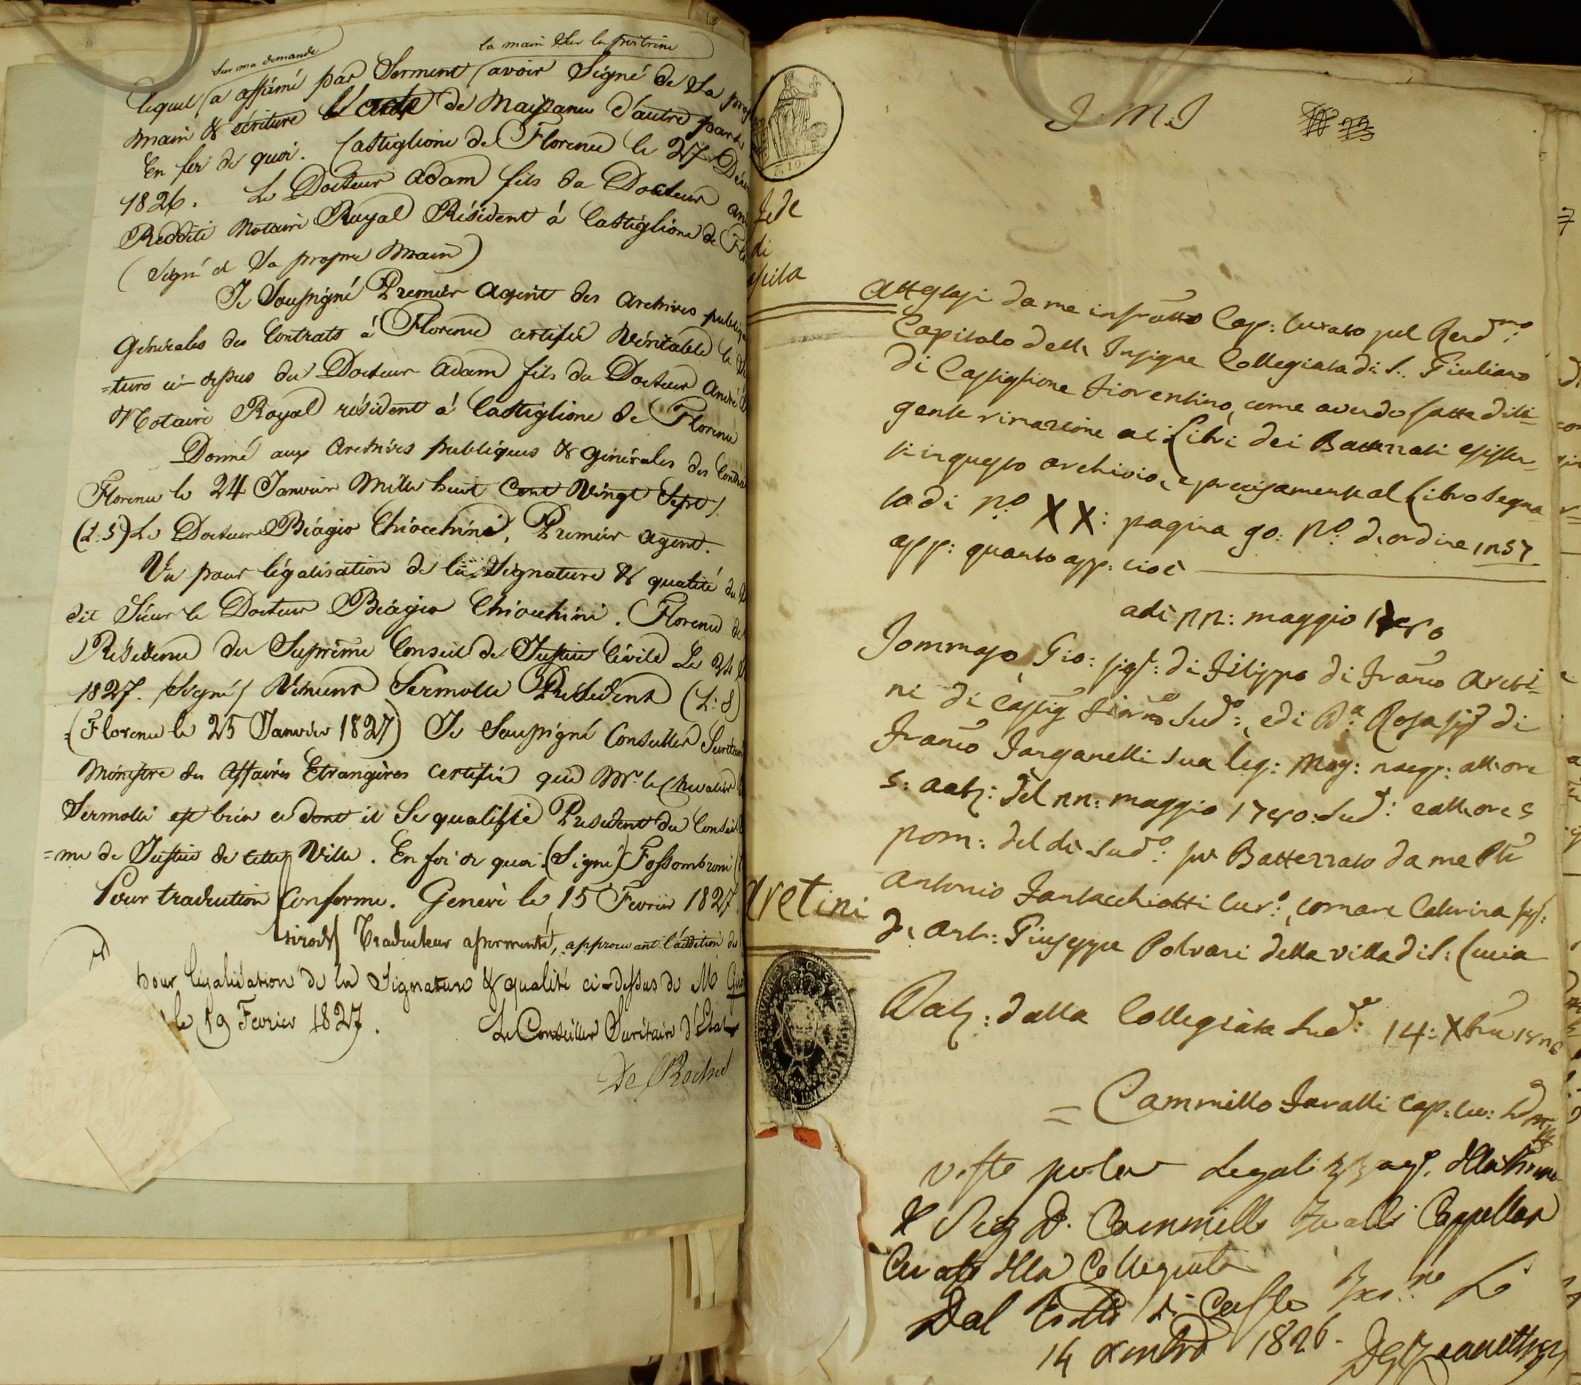 sur ma demande la main sur la poitrine
lequel a affirmé par Serment avoir Signé de Sa
main & écriture l'acte de Naissance d'autre part
En foi de quoi. Castiglione de Florence le 27
1826. Le Docteur Adam fils du Docteur
Redditi Notaire Royal Résident à Castiglione de
(Signé de Sa propre Main)
Je Soussigné Premier Agent des Archives
Générales des Contrats à Florence certifie Véritable la
=ture ci-dessus du Docteur Adam fils du Docteur André
Notaire Royal résident à Castiglione de Florence
Donné aux Archives publiques & générales des
Florence le 24 Janvier Mille huit Cent Vingt Sept
(L:S) Le Docteur Biágio Chiocchini, Premier Agent.
Vu pour légalisation de la Signature & qualité du
dit Sieur le Docteur Biágio Chiocchini. Florence de
Résidence du Suprême Conseil de Justice Civile Le 24
1827. (Signé) Sermolli Président (L:S)
(Florence le 25 Janvier 1827) Je Soussigné Conseiller
Ministre des Affaires Etrangères certifie que Mr. le Chevalier
Sermolli est bien ce dont il Se qualifie Président du Conseil
=me de Justice de cette Ville. En foi de quoi (Signé) Fossombroni
Pour traduction Conforme. Genève le 15 Fevrier 1827
Traducteur assermenté, approuvant l'addition
pour légalisation de la Signature & qualité ci-dessus de M
le 19 Fevrier 1827.
Le Conseiller Secrétaire d'Etat
De Roches
J. M. J
Fede
di
Attestasi da me infratto Cap: Curato pel Rerdmo:
Capitolo della Insigne Collegiata di S. Giuliano
di Castiglione Fiorentino, come avendo fatta dili-
gente ai Libri dei Battezzati esisten-
ti in questo archivio, e precisamente al Libro Segna-
to di No XX: pagina 90: No. d'ordine
app: quanto app: cioè
adì 22: maggio
Tommaso Gio: figl: di Filippo di Franco Areti-
ni di Castig Fiorno Sudo:, e di Da Rosa figl di
Franco Farganelli Sua leg: Mog: nacque: alle ore
5: del 22: maggio 1780: Sud: e alle ore 5
pom: del di Sudo: fu Battezzato da me
Antonio Fantacchiotti Curo:, comare Caterina
di Ant: Giuseppe Polvani della villa di S: Lucia
Aretini
Dalla Collegiata Sud: 14: Xbre 1826
= Cammillo Favalli Cap: Cu:
visto per la Legalizzaz. della firma
Sig D. Cammillo Favalli Cappellan
Curato della Collegiata
Dal di
14 1826.